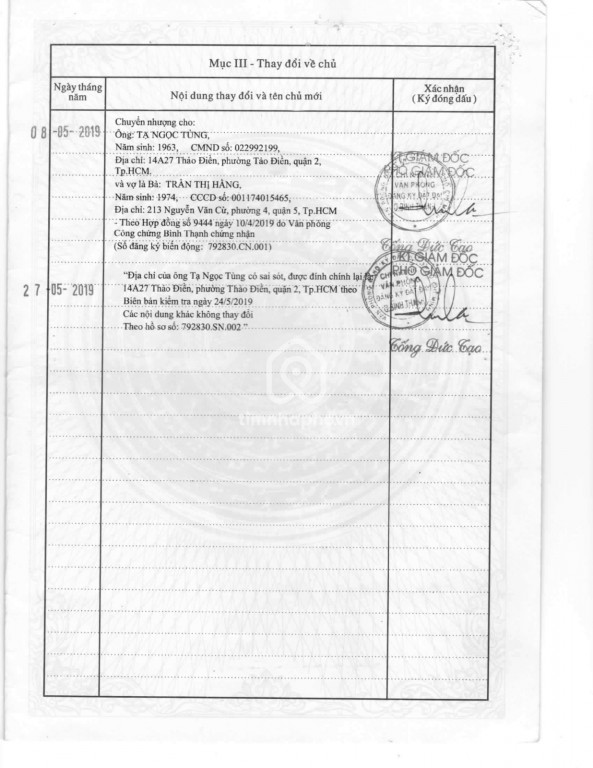 Mục III - Thay đổi về chủ
Ngày tháng năm
Nội dung thay đổi và tên chủ mới
Xác nhận
( Ký đóng dấu )
08 -05- 2019
Chuyển nhượng cho:
Ông: TẠ NGỌC TÙNG,
Năm sinh: 1963, CMND số: 022992199,
Địa chỉ: 14A27 Thảo Điền, phường Tảo Điền, quận 2,
Tp.HCM,
và vợ là Bà: TRẦN THỊ HẰNG,
Năm sinh: 1974, CCCD số: 001174015465,
Địa chỉ: 213 Nguyễn Văn Cừ, phường 4, quận 5, Tp.HCM
- Theo Hợp đồng số 9444 ngày 10/4/2019 do Văn phòng
Công chứng Bình Thạnh chứng nhận
(Số đăng ký biến động: 792830.CN.001)
KT.GIÁM ĐỐC
PHÓ GIÁM ĐỐC
VĂN PHÒNG
ĐĂNG KÝ ĐẤT ĐAI
Tống Đức Tạo
27 -05- 2019
“Địa chỉ của ông Tạ Ngọc Tùng có sai sót, được đính chính lại là:
14A27 Thảo Điền, phường Thảo Điền, quận 2, Tp.HCM theo
Biên bản kiểm tra ngày 24/5/2019
Các nội dung khác không thay đổi
Theo hồ sơ số: 792830.SN.002 ”
KT.GIÁM ĐỐC
PHÓ GIÁM ĐỐC
CHI NHÁNH
VĂN PHÒNG
ĐĂNG KÝ ĐẤT ĐAI
Q.BÌNH THẠNH
Tống Đức Tạo
timnhapho.vn